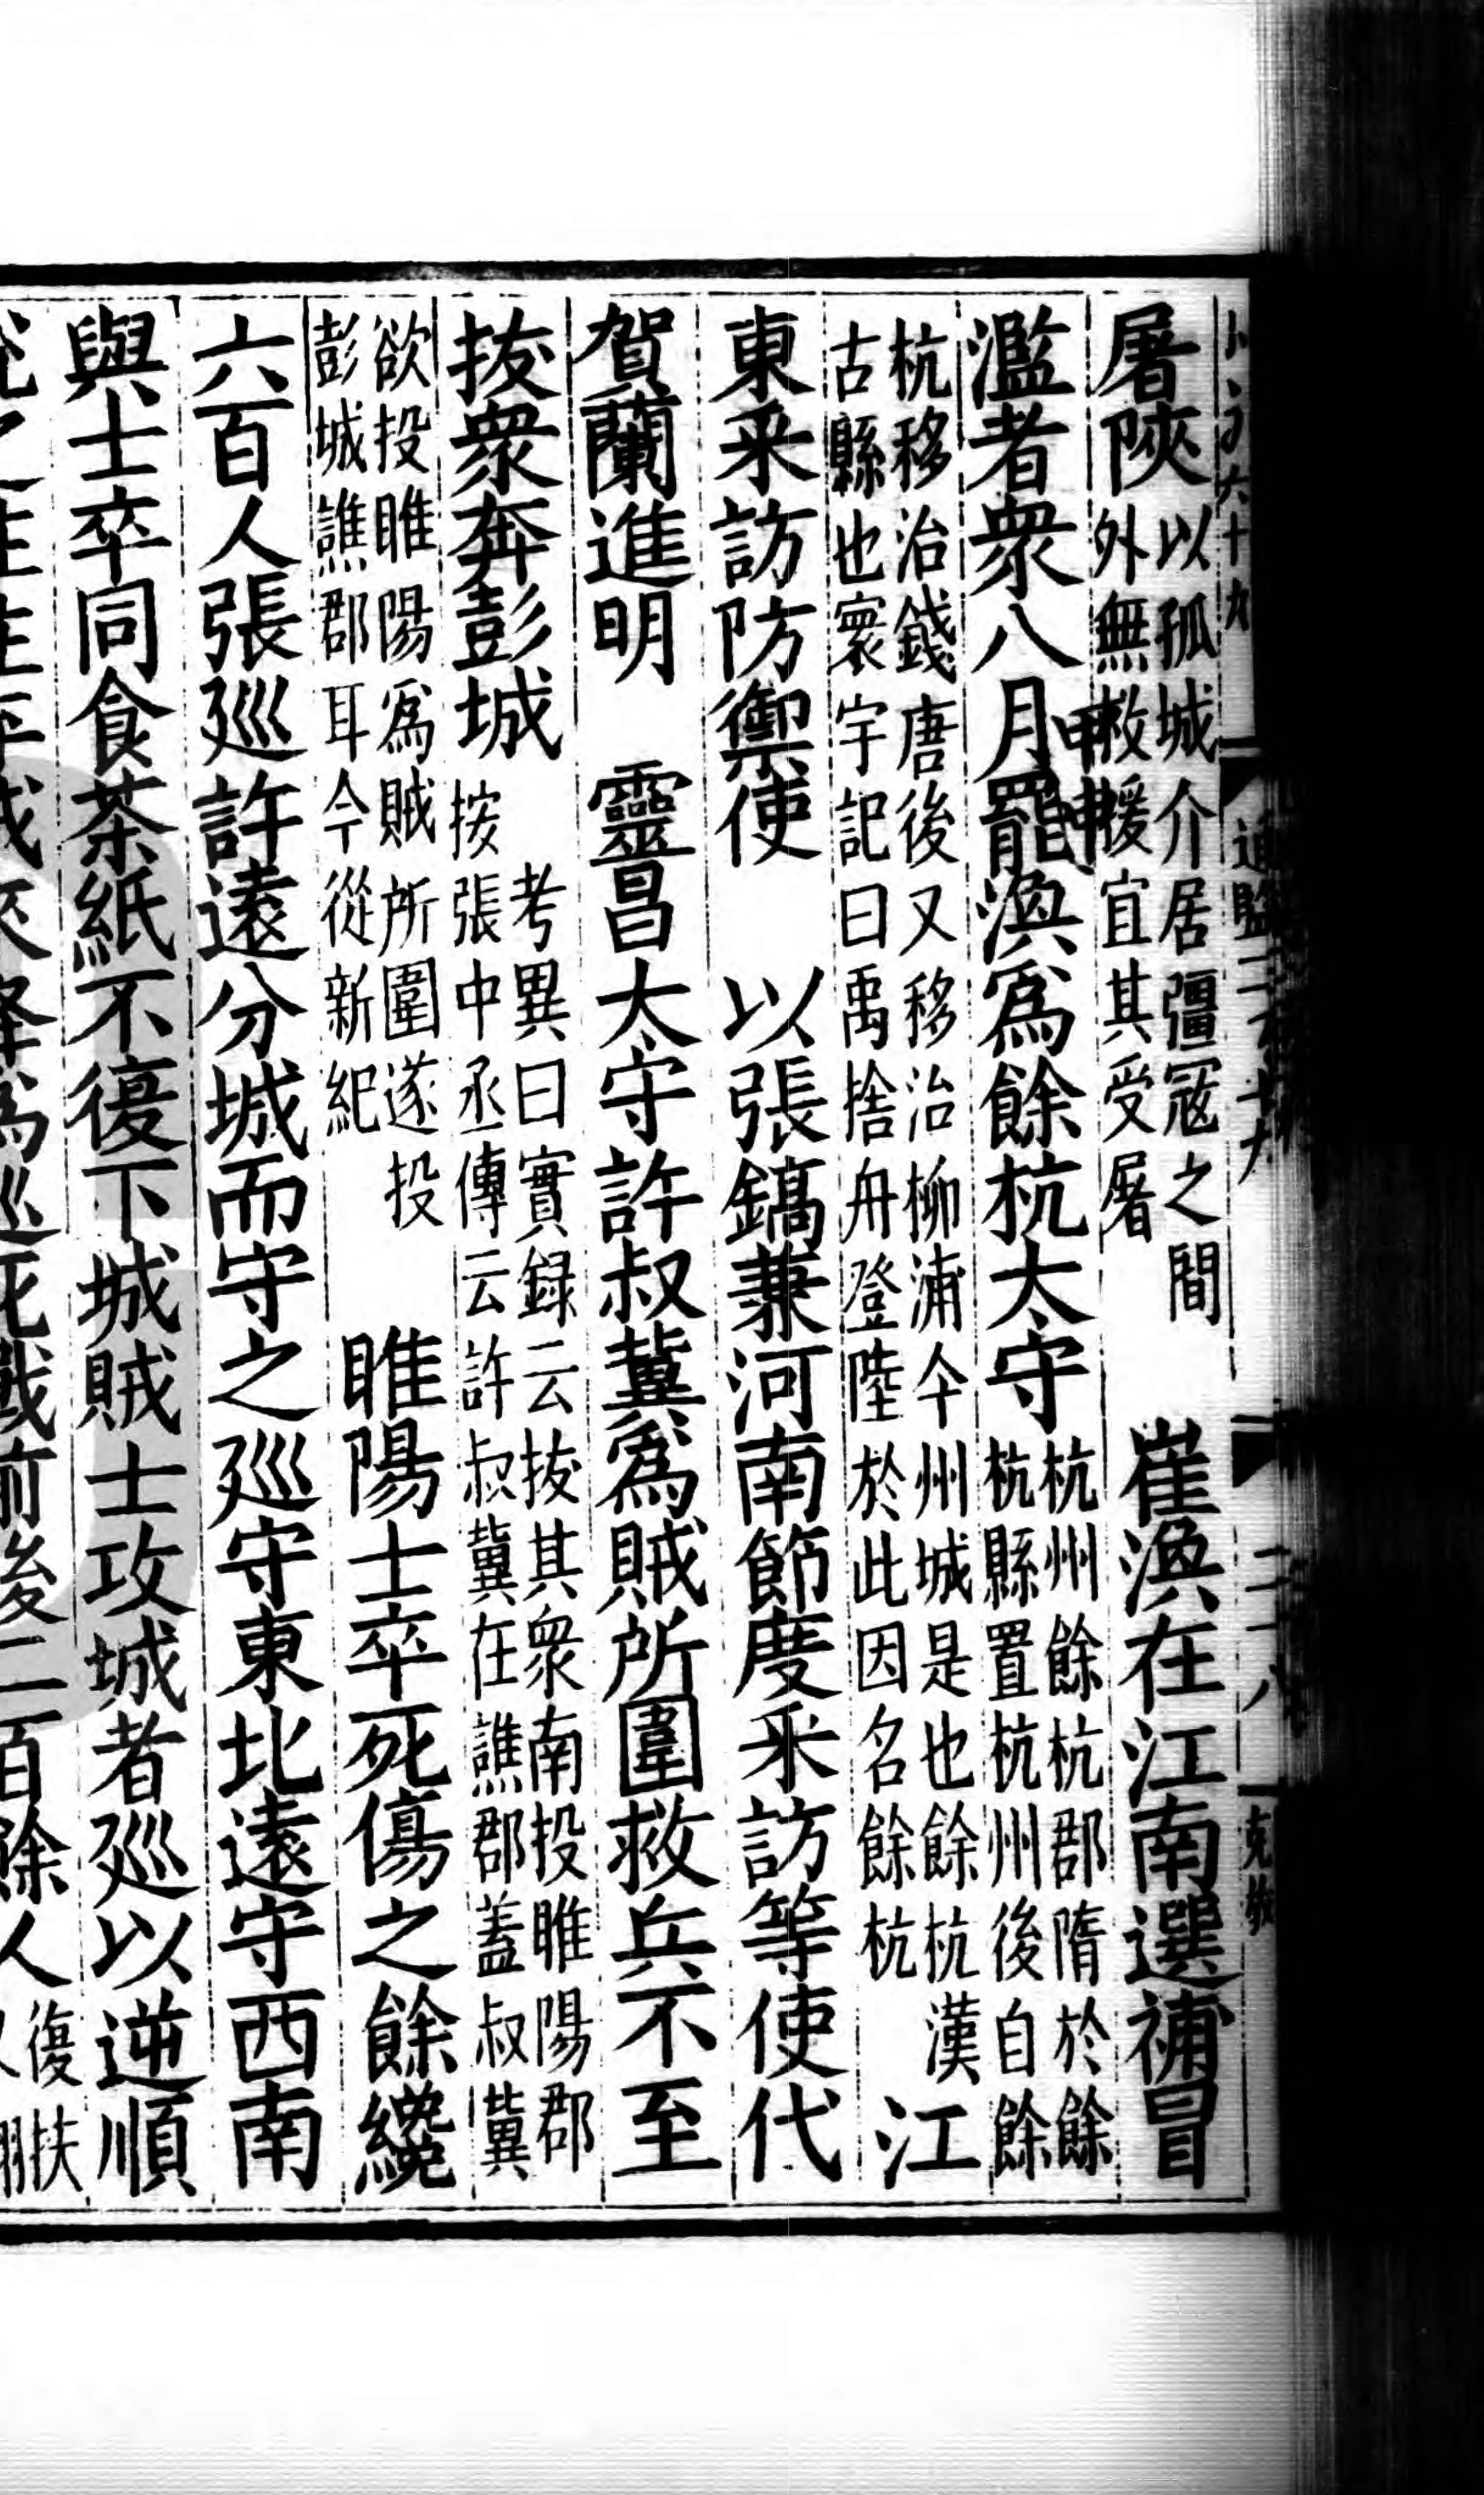 屠陝以孤城介居彊寇之間外無救援宜其受屠　崔渙在江南選補冒
濫者衆八月甲申罷渙爲餘杭太守杭州餘杭郡隋於餘杭縣置杭州後自餘
杭移治錢唐後又移治柳浦今州城是也餘杭漢古縣也寰宇記曰禹捨舟登陸於此因名餘杭　江
東采訪防禦使　以張鎬兼河南節度采訪等使代
賀蘭進明　靈昌太守許叔冀爲賊所圍救兵不至
拔衆奔彭城考異曰實録云拔其衆南投睢陽郡按張中丞傳云許叔冀在譙郡蓋叔冀
欲投睢陽爲賊所圍遂投彭城譙郡耳今從新紀　睢陽士卒死傷之餘纔
六百人張巡許遠分城而守之巡守東北遠守西南
與士卒同食茶紙不復下城賊士攻城者巡以逆順